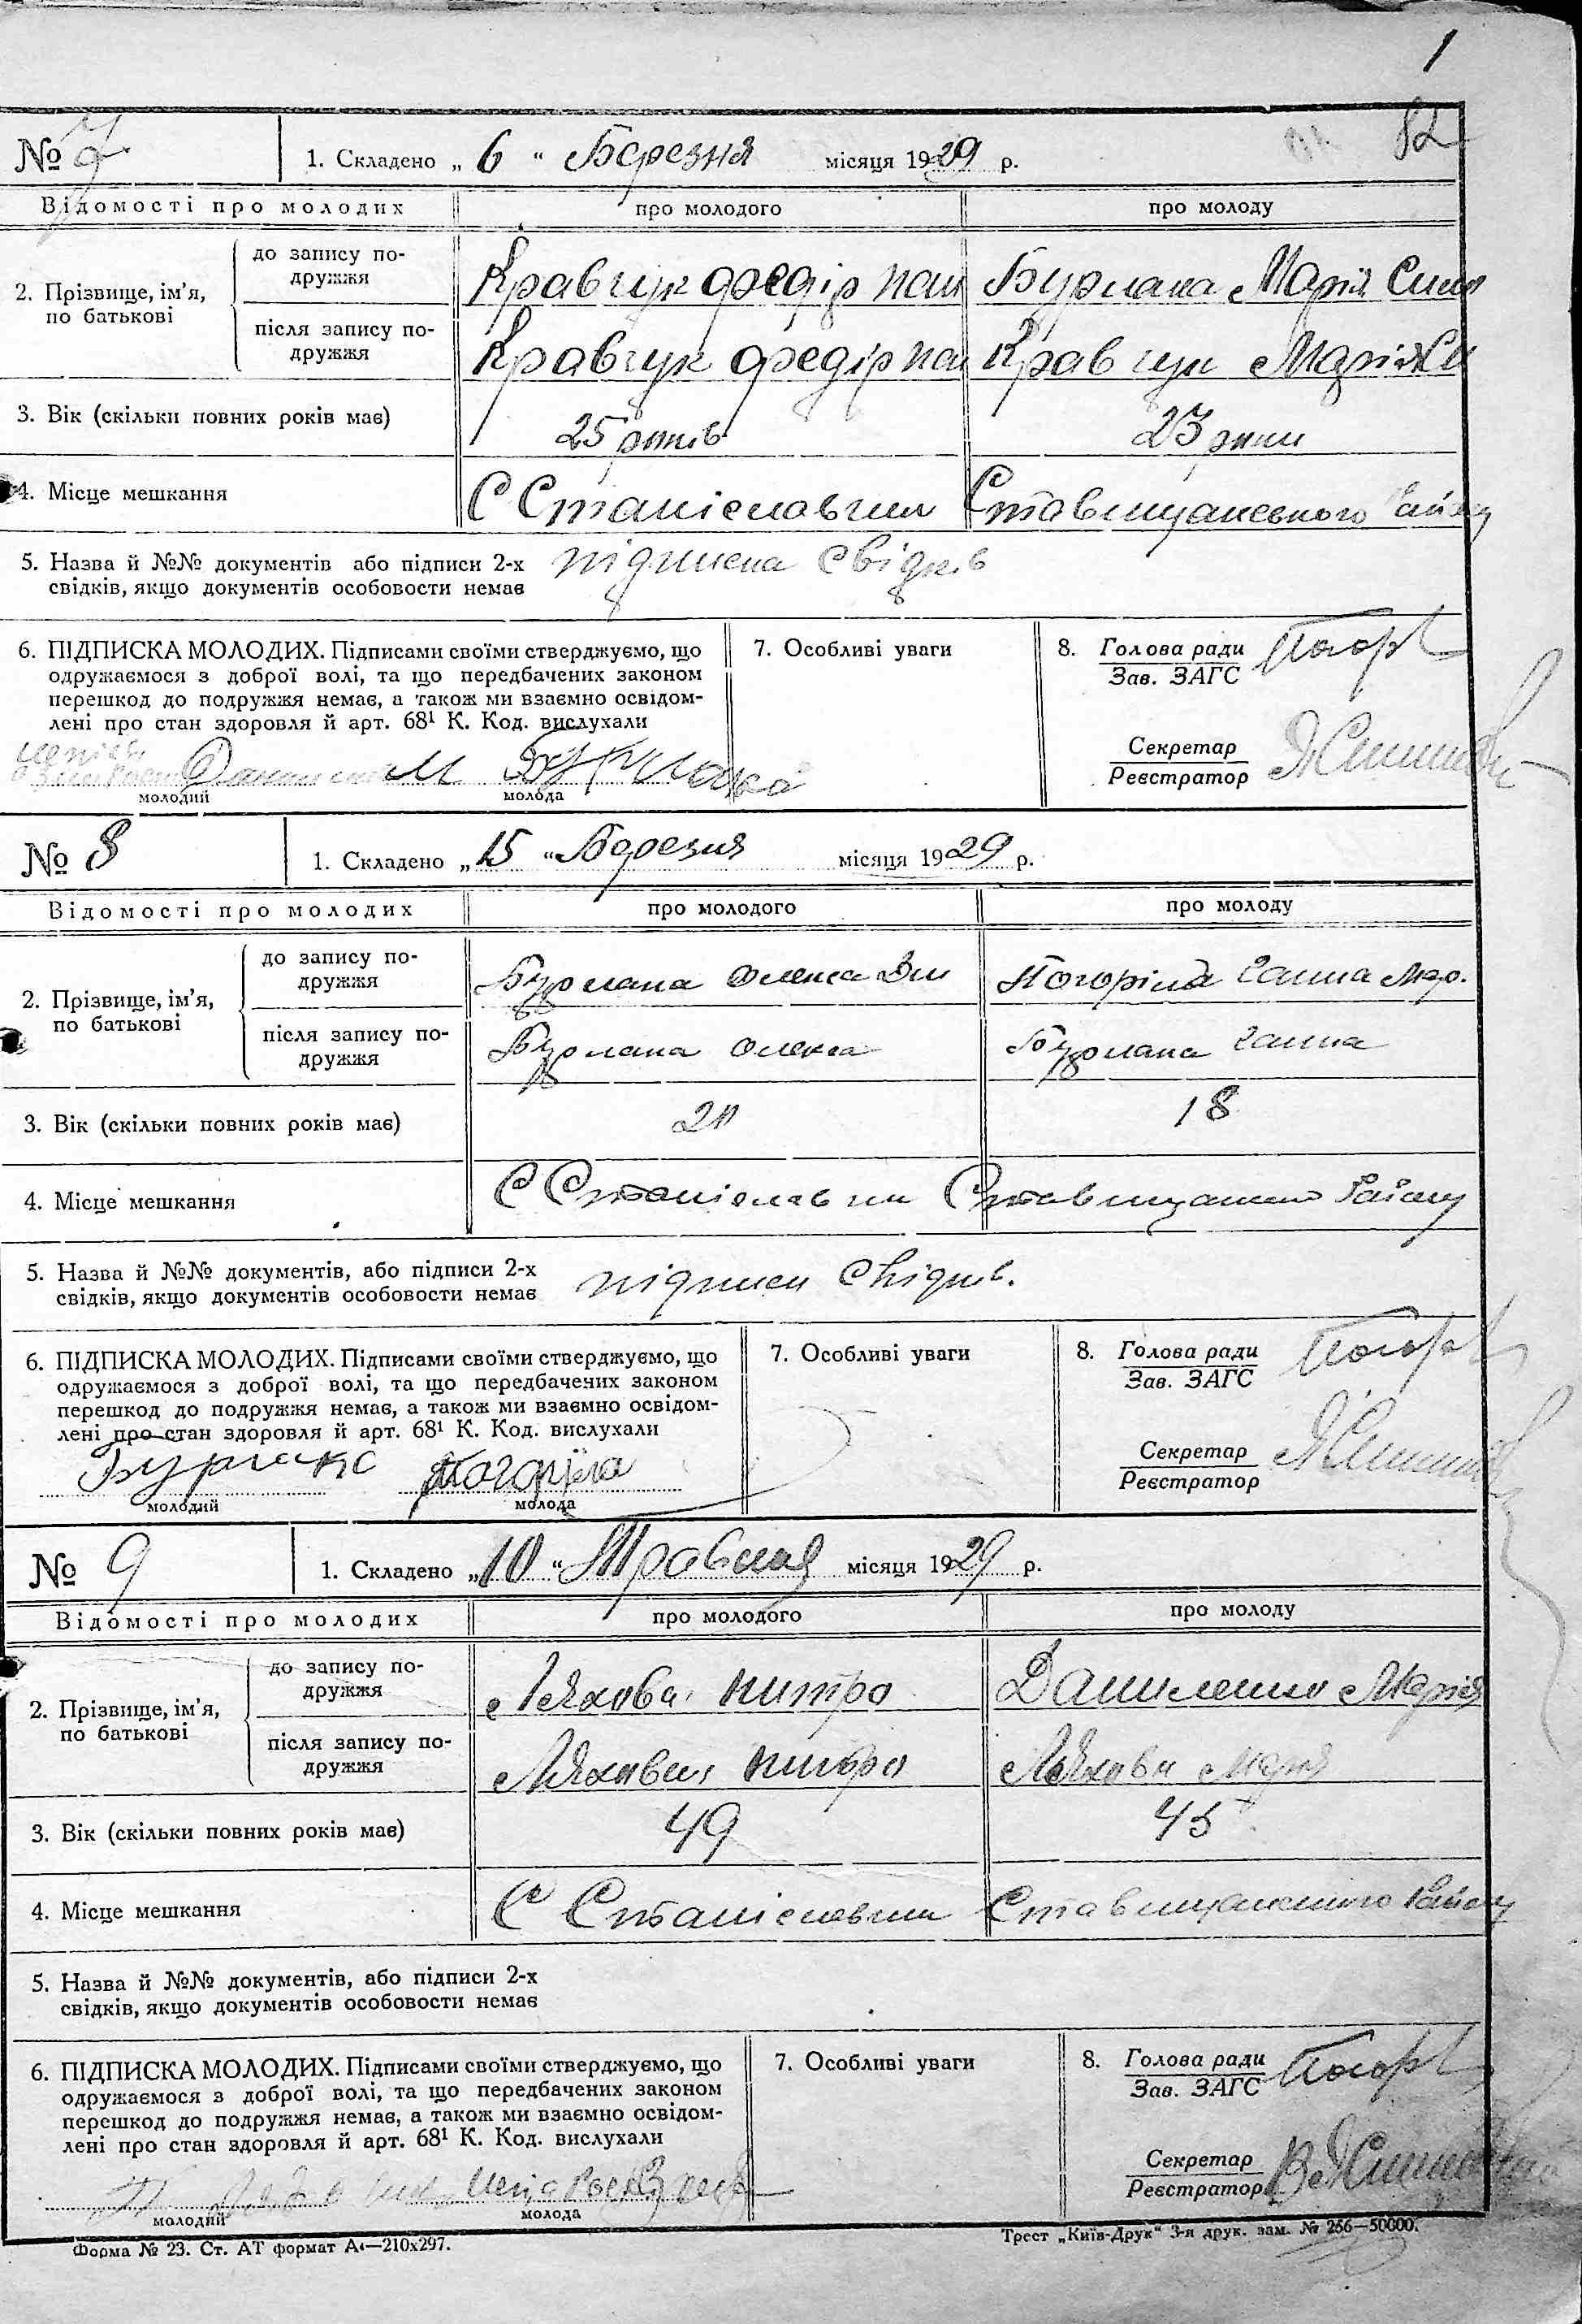 1
82
№ 7 1. Складено „ 6 “ Березня місяця 1929 р.
Відомості про молодих про молодого про молоду
2. Прізвище, ім’я, по батькові
до запису по-
дружжя
Кравчук Федір Пан Бурлака Марія Сим
після запису по-
дружжя
Кравчук Федір Пан Кравчук Марія Си
3. Вік (скільки повних років має) 25 років 23 роки
4. Місце мешкання С Станіславчик Ставищанського Району
5. Назва й №№ документів або підписи 2-х
свідків, якщо документів особовости немає
свідків
6. ПІДПИСКА МОЛОДИХ. Підписами своїми стверджуємо, що
одружаємося з доброї волі, та що передбачених законом
перешкод до подружжя немає, а також ми взаємно освідом-
лені про стан здоровля й арт. 68¹ К. Код. вислухали
М Бурлака
молодий молода
7. Особливі уваги
8. Голова ради
Зав. ЗАГС
Секретар
Реєстратор
№ 8 1. Складено „ 15 “ Березня місяця 1929 р.
Відомості про молодих про молодого про молоду
2. Прізвище, ім’я, по батькові
до запису по-
дружжя
Бурлака Олекса Погоріла Ганна Мар.
після запису по-
дружжя
Бурлака Олекса Бурлака Ганна
3. Вік (скільки повних років має) 18
4. Місце мешкання С Станіславчик Ставищанського Району
5. Назва й №№ документів, або підписи 2-х
свідків, якщо документів особовости немає
підписи свідків.
6. ПІДПИСКА МОЛОДИХ. Підписами своїми стверджуємо, що
одружаємося з доброї волі, та що передбачених законом
перешкод до подружжя немає, а також ми взаємно освідом-
лені про стан здоровля й арт. 68¹ К. Код. вислухали
Бурлака Погоріла
молодий молода
7. Особливі уваги
8. Голова ради
Зав. ЗАГС
Секретар
Реєстратор
№ 9 1. Складено „ 10 “ Травня місяця 1929 р.
Відомості про молодих про молодого про молоду
2. Прізвище, ім’я, по батькові
до запису по-
дружжя
Даниленко Марія
після запису по-
дружжя
Марія
3. Вік (скільки повних років має) 49 45
4. Місце мешкання С Станіславчик Ставищанського Району
5. Назва й №№ документів, або підписи 2-х
свідків, якщо документів особовости немає
6. ПІДПИСКА МОЛОДИХ. Підписами своїми стверджуємо, що
одружаємося з доброї волі, та що передбачених законом
перешкод до подружжя немає, а також ми взаємно освідом-
лені про стан здоровля й арт. 68¹ К. Код. вислухали
молодий молода
7. Особливі уваги
8. Голова ради
Зав. ЗАГС
Секретар
Реєстратор
Форма № 23. Ст. АТ формат А4—210x297.
Трест „Київ-Друк“ 3-я друк. зам. № 256—50000.